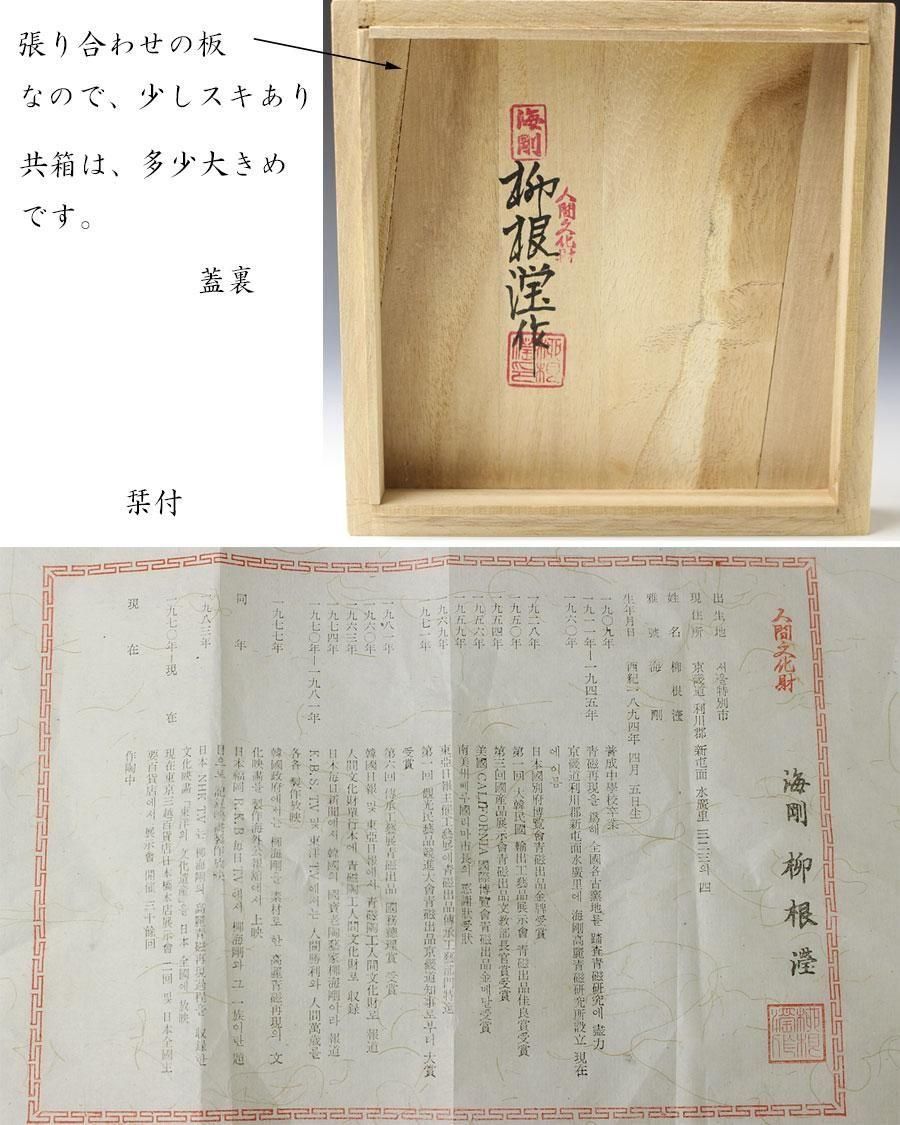 張り合わせの板
なので、少しスキあり
共箱は、多少大きめ
です。
蓋裏
栞付
海剛
人間文化財
柳根瀅作
人間文化財
海剛 柳根瀅
出生地 서울特別市
現住所 京畿道 利川郡 新屯面 水廣里 三二三의 四
姓名 柳根瀅
雅號 海剛
生年月日 西紀一八九四年 四月 五日生
一九〇九年 普成中學校卒業
一九一一年—一九四五年 青磁再現을 爲해 全國各古窯地를 踏査青磁研究에 盡力
一九六〇年 京畿道利川郡新屯面水廣里에 海剛高麗青磁研究所設立 現在
에 이름
一九二八年 日本國別府博覽會青磁出品金牌受賞
一九五〇年 第一回 大韓民國 輸出工藝品展示會 青磁出品佳良賞受賞
一九五四年 第三回國産品展示會青磁出品文敎部長官賞受賞
一九五六年 美國 CALIFORNIA 國際博覽會青磁出品金메달受賞
一九五九年 南美州페루國리마市長의 感謝狀受狀
一九六九年 東亞日報主催工藝展에青磁出品傳承工藝部門特選
一九七一年 第一回 觀光民藝品競進大會青磁出品京畿道知事로부터 大賞
受賞
一九八一年 第六回 傳承工藝展青磁出品 國務總理賞 受賞
一九六〇年 韓國日報 및 東亞日報에서 青磁陶工人間文化財로 報道
一九六三年 人間文化財單行本에 青磁陶工人間文化財로 収録
一九七四年 日本每日新聞에서 韓國의 國寶老陶藝家柳海剛이라 報道
一九七〇年—一九八一年 K.B.S. TV 및 東洋 TV에서는 人間勝利와 人間萬歲를
各各 製作放映
一九七七年 韓國政府에서는 柳海剛을 素材로 한 高麗青磁再現의 文
化映畵를 製作海外公報館에서 上映
同年 日本福岡 R.K.B 每日 TV에서 柳海剛과 그 一族이란 題
一九八三年 日本 NHK TV는 柳海剛의 高麗青磁再現過程을 収録한
文化映畵「東洋의 文化遺産」을 日本 全國에 放映
一九七〇年—現在 現在東京三越百貨店日本橋本店展示會 二回 및 日本全國主
要百貨店에서 展示會 開催 三十餘回
現在 作陶中